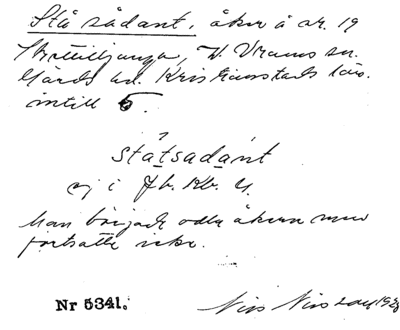 Stå sådant, åker å nr. 19
Skättilljunga, V. Vrams sn.
Gärds hd. Kristianstads län.
intill 6.
ståtsadant
ej i Jb. Kb. U.
Man började odla åkern men
fortsatte icke.
Nr 5341.
Nils Nilsson 1928